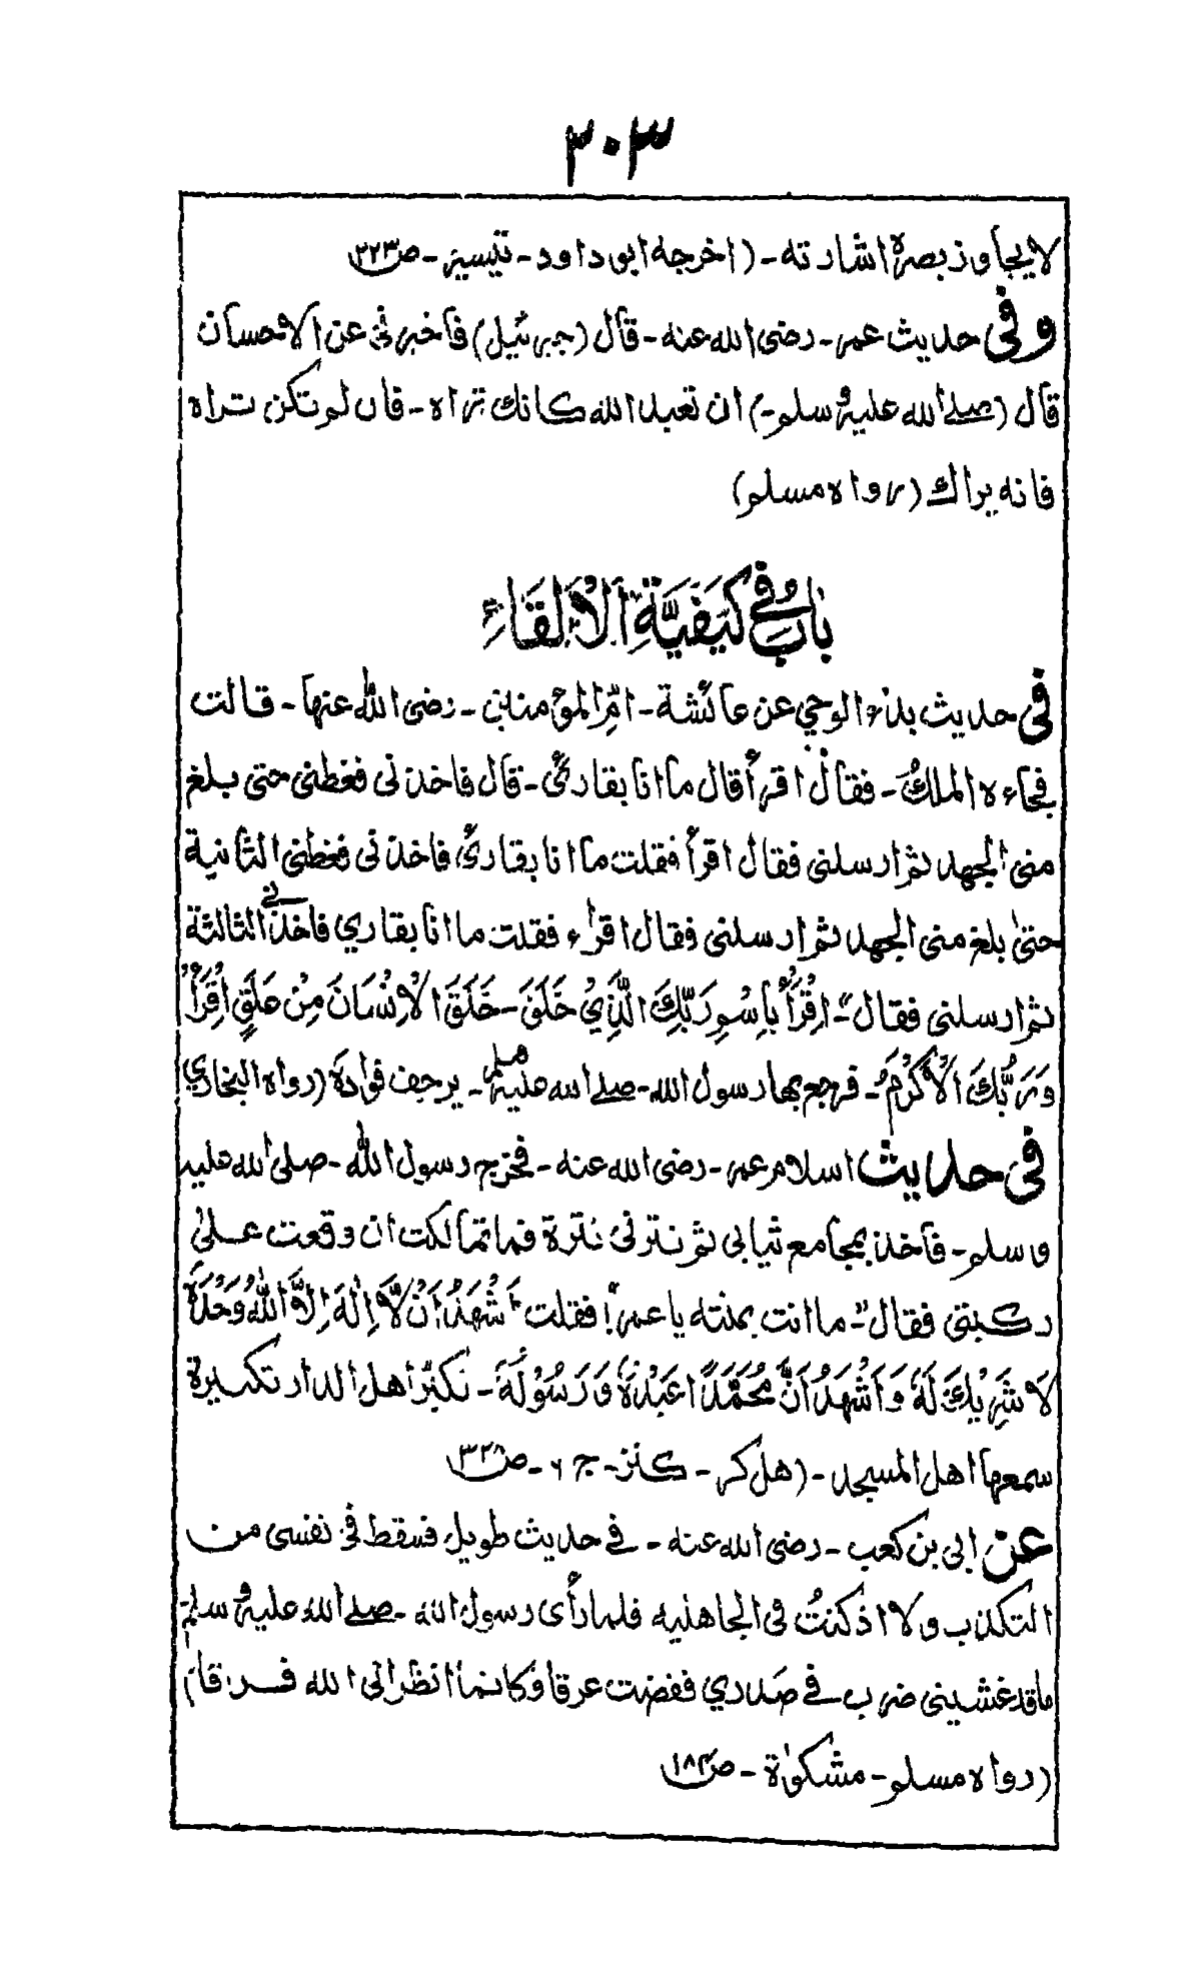 ٣٠٣
لا يجاوز بصرہ اشارته - (اخرجه ابو داود - تيسير - ص٢٢٣
وفی حديث عمر - رضی الله عنه - قال (جبرئيل) فأخبرنی عن الاحسان
قال (صلے الله عليه وسلم -) ان تعبد الله كانك تراه - فان لم تكن تراه
فانه يراك (رواه مسلم)
بَابٌ فِي كَيْفِيَّةِ الْاِلْقَاءِ
فی حديث بدء الوحي عن عائشة - امّ المؤمنين - رضی الله عنها - قالت
فجاءه الملكُ - فقال اقرأ قال ما انا بقارئ - قال فاخذنی فغطنی حتى بلغ
منی الجهد ثم ارسلنی فقال اقرأ فقلت ما انا بقارئ فاخذنی فغطنی الثانية
حتیٰ بلغ منی الجهد ثم ارسلنی فقال اقراء فقلت ما انا بقاري فاخذنی الثالثة
ثم ارسلنی فقال "- اِقْرَأْ بِاسْمِ رَبِّكَ الَّذِيْ خَلَقَ - خَلَقَ الْاِنْسَانَ مِنْ عَلَقٍ اِقْرَأْ
وَرَبُّكَ الْاَكْرَمُ" - فرجع بها رسول الله - صلے الله عليه وسلم - يرجف فواده (رواه البخاري)
فی حديث اسلام عمر - رضی الله عنه - فخرج رسول الله - صلی الله عليه
وسلم - فأخذ بمجامع ثيابی ثم نترنی نترة فما تمالكت ان وقعت علیٰ
ركبتی فقال "- ما انت بمنته يا عمر"! فقلت "اَشْهَدُ اَنْ لَّا اِلٰهَ اِلَّا اللهُ وَحْدَهٗ
لَا شَرِيْكَ لَهٗ وَاَشْهَدُ اَنَّ مُحَمَّدًا عَبْدُهٗ وَرَسُوْلُهٗ - فكبّر اهل الدار تكبيرة
سمعها اهل المسجد - (هل كر - كنز - ج ٦ - ص٣٢٨
عن ابی بن كعب - رضی الله عنه - فی حديث طويل فسقط فی نفسی من
التكذيب ولا اذ كنتُ فی الجاهليه فلما رأى رسول الله - صلے الله عليه وسلم
ما قد غشينی ضرب فی صدري ففضت عرقا وكانما انظر الی الله فرقا
(رواه مسلم - مشكوٰة - ص١٨٤